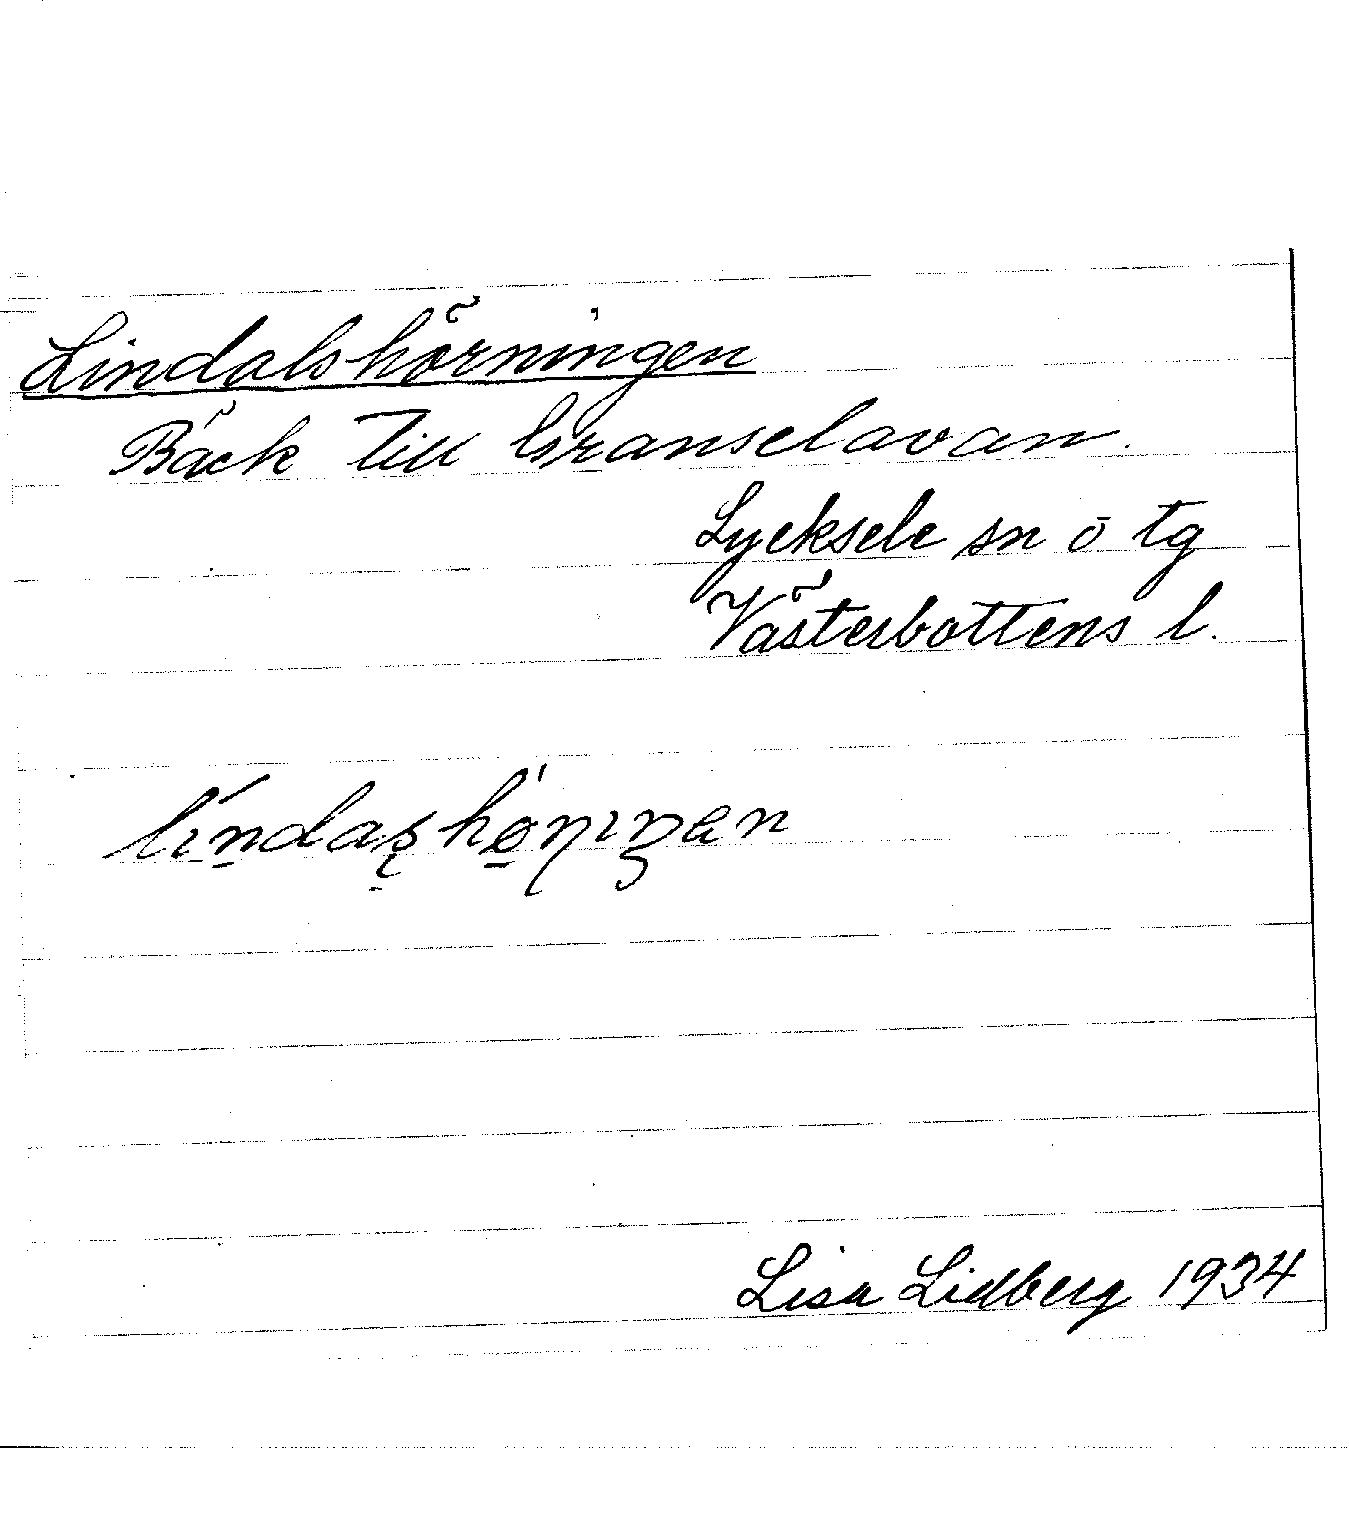 Lindalshörningen
Bäck till Granselavan.
Lycksele sn o tg
Västerbottens l.
Lisa Lidberg 1934